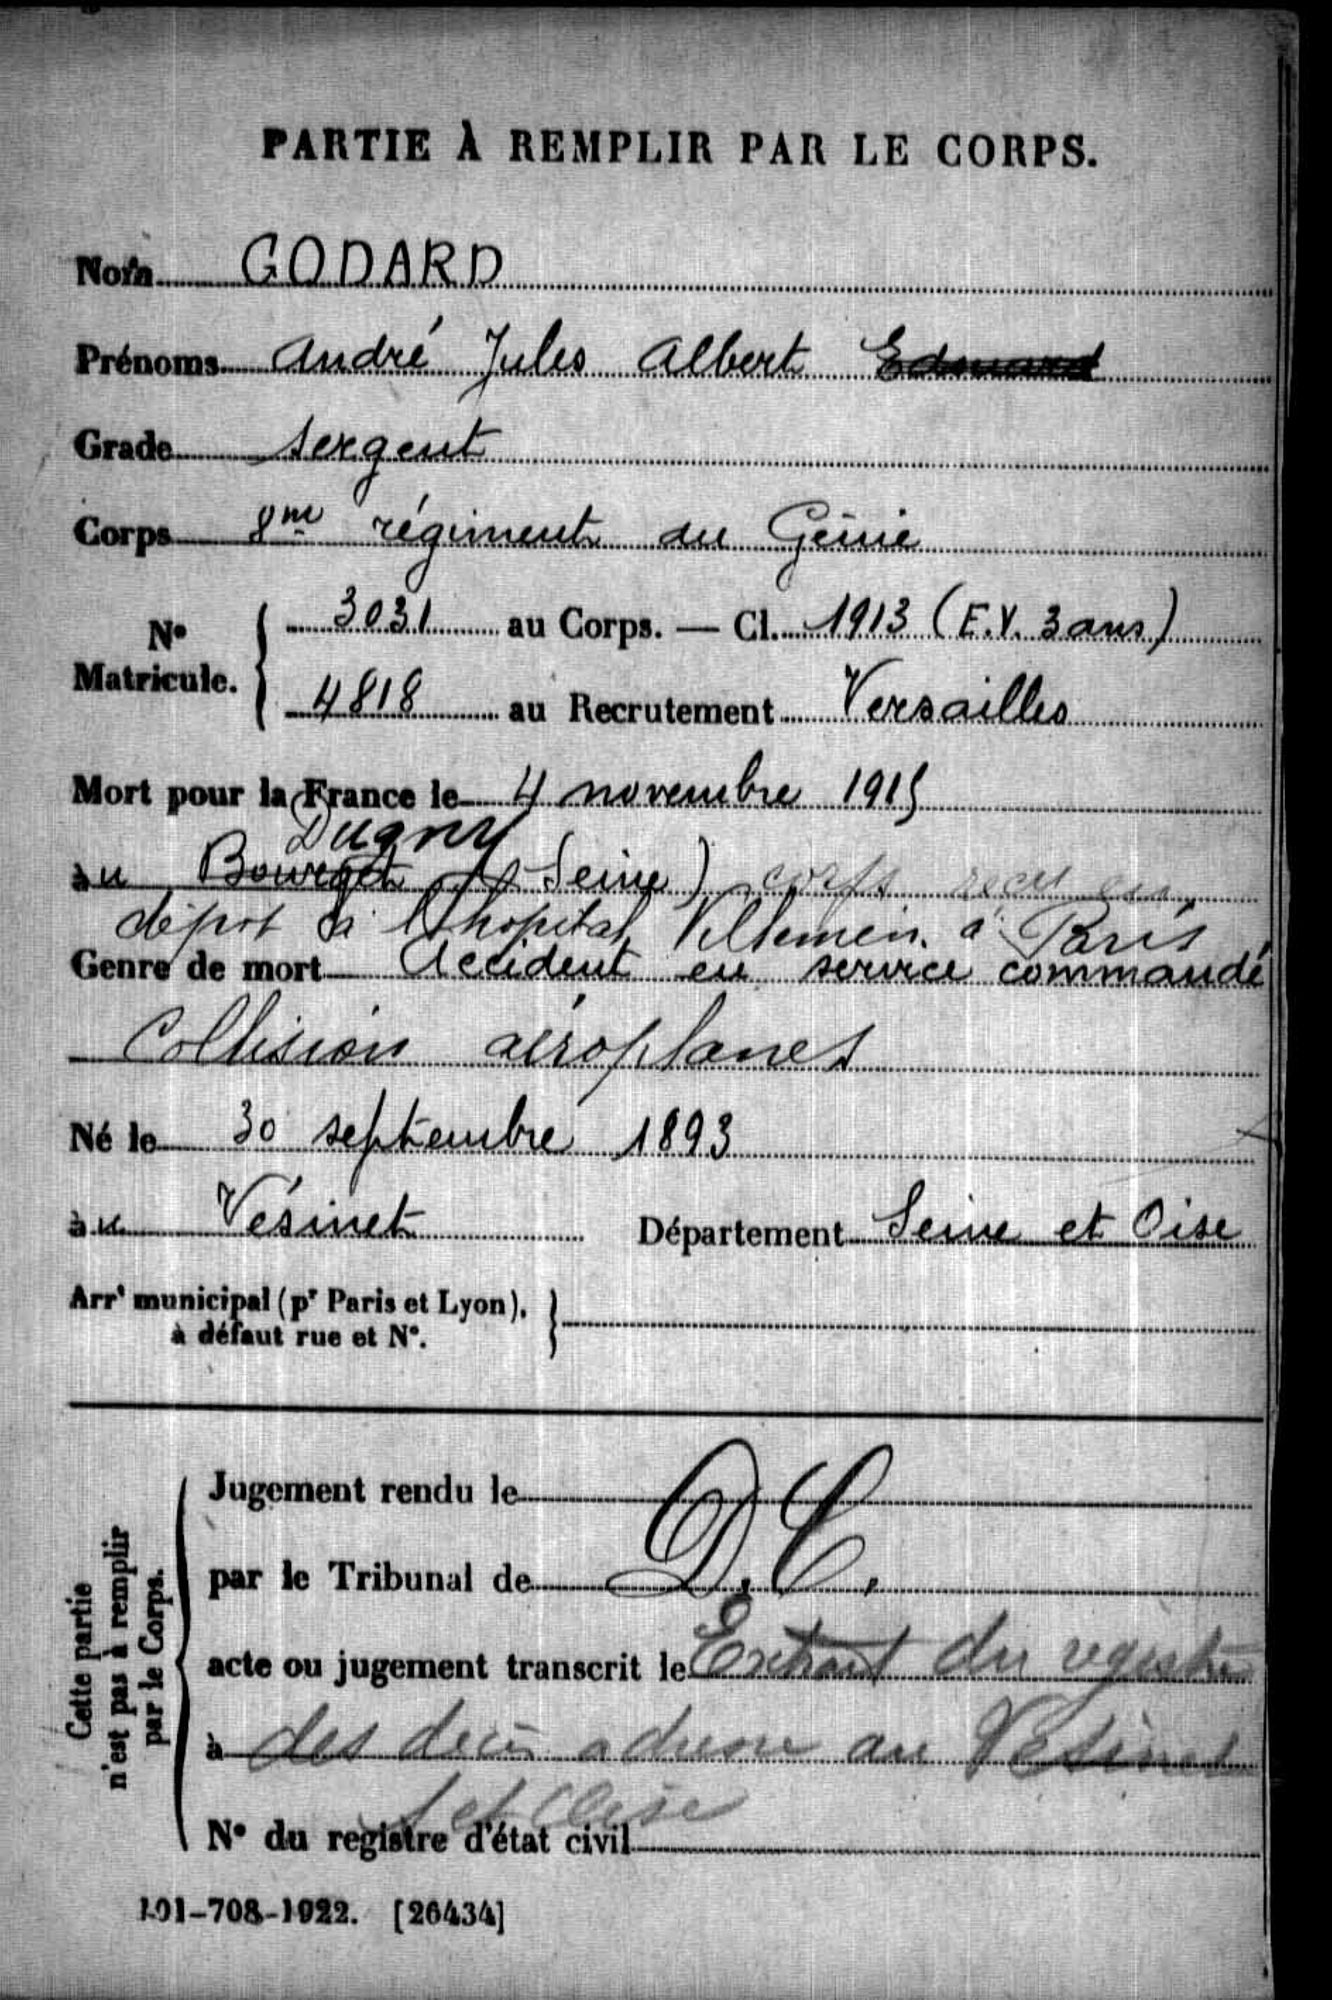 PARTIE À REMPLIR PAR LE CORPS.
Nom GODARD
Prénoms André Jules Albert Edouard
Grade sergent
Corps 8me régiment du Génie
No Matricule. 3031 au Corps. — Cl. 1913 (E.V. 3 ans)
4818 au Recrutement Versailles
Mort pour la France le 4 novembre 1915
Dugny
au Bourget (Seine) corps reçu en
dépot à l'hopital Villemin à Paris
Genre de mort Accident en service commandé
Collision aéroplanes
Né le 30 septembre 1893
au Vésinet Département Seine et Oise
Arrt municipal (pr Paris et Lyon),
à défaut rue et No.
Cette partie
n'est pas à remplir
par le Corps.
Jugement rendu le
par le Tribunal de D.C.
acte ou jugement transcrit le Extrait du registre
à des décès adressé au Vésinet
S et Oise
No du registre d'état civil
101-708-1922. [26434]